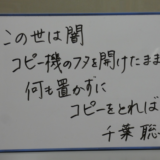 この世は闇
コピー機のフタを開けたまま
何も置かずに
コピーをとれば
千葉 聡